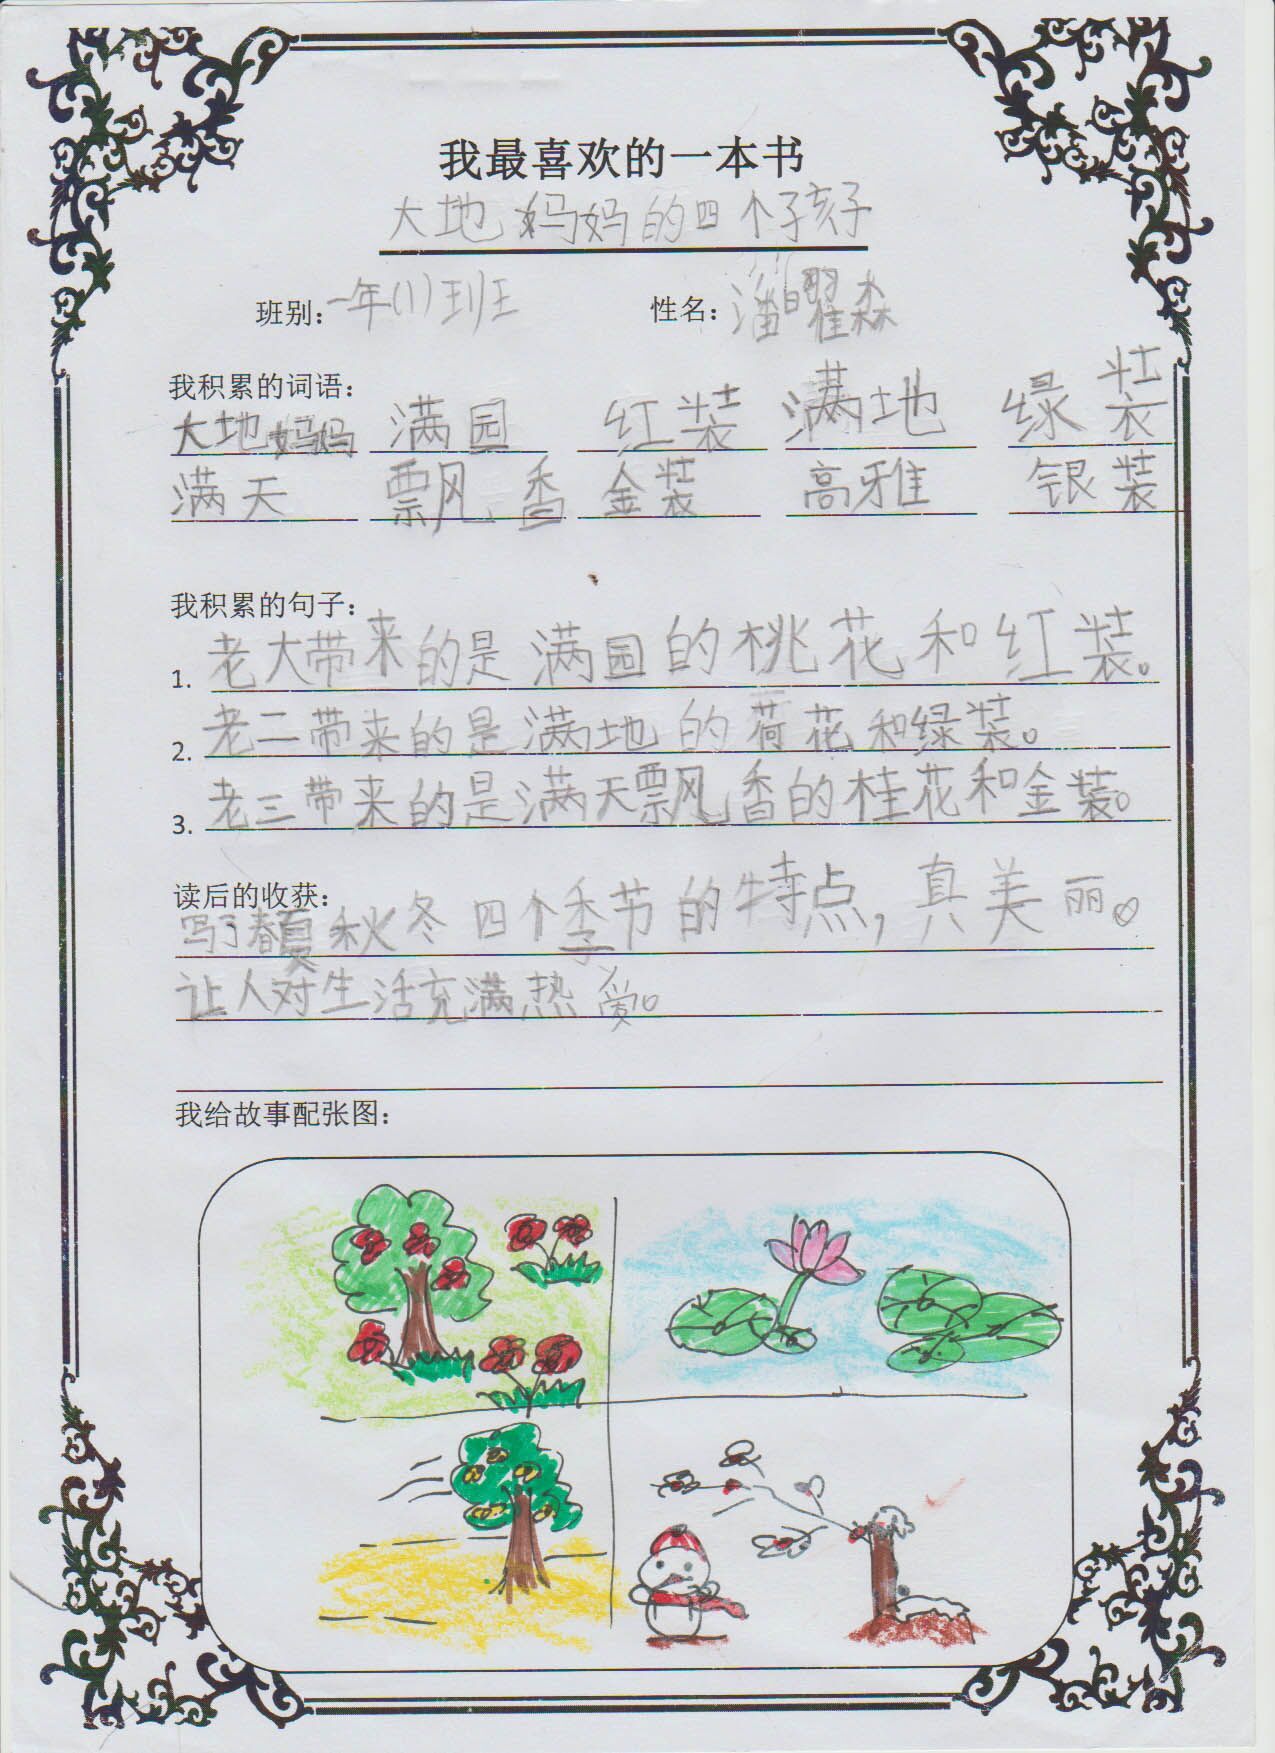 我最喜欢的一本书
大地妈妈的四个孩子
班别：一年(1)班 姓名：潘曜森
我积累的词语：
大地妈妈 满园 红装 满地 绿装
满天 飘香 金装 高雅 银装
我积累的句子：
1. 老大带来的是满园的桃花和红装。
2. 老二带来的是满地的荷花和绿装。
3. 老三带来的是满天飘香的桂花和金装。
读后的收获：
写了春夏秋冬四个季节的特点，真美丽。
让人对生活充满热爱。
我给故事配张图：